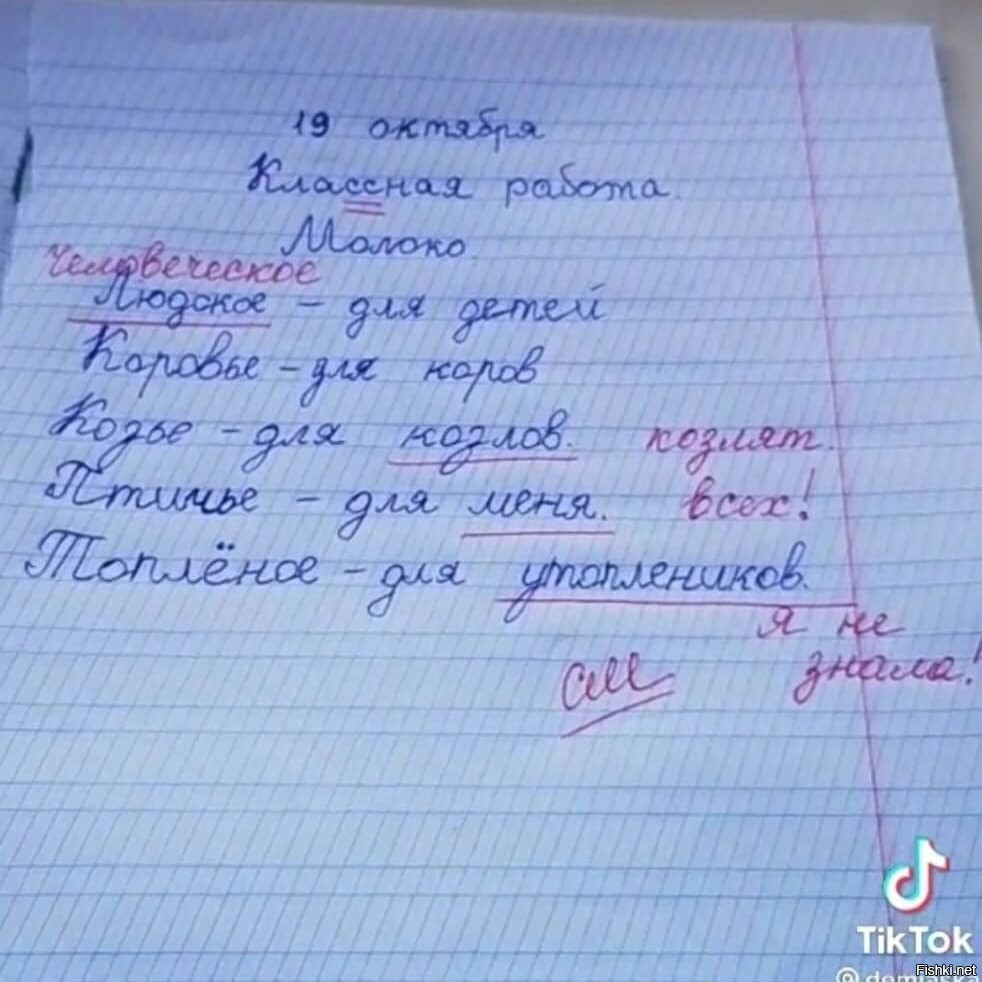 19 октября
Классная работа.
Молоко.
Человеческое
Людское – для детей
Коровье – для коров
Козье – для козлов. козлят.
Птичье – для меня. всех!
Топлёное – для утоплеников.
я не
см знала!
TikTok
Fishki.net